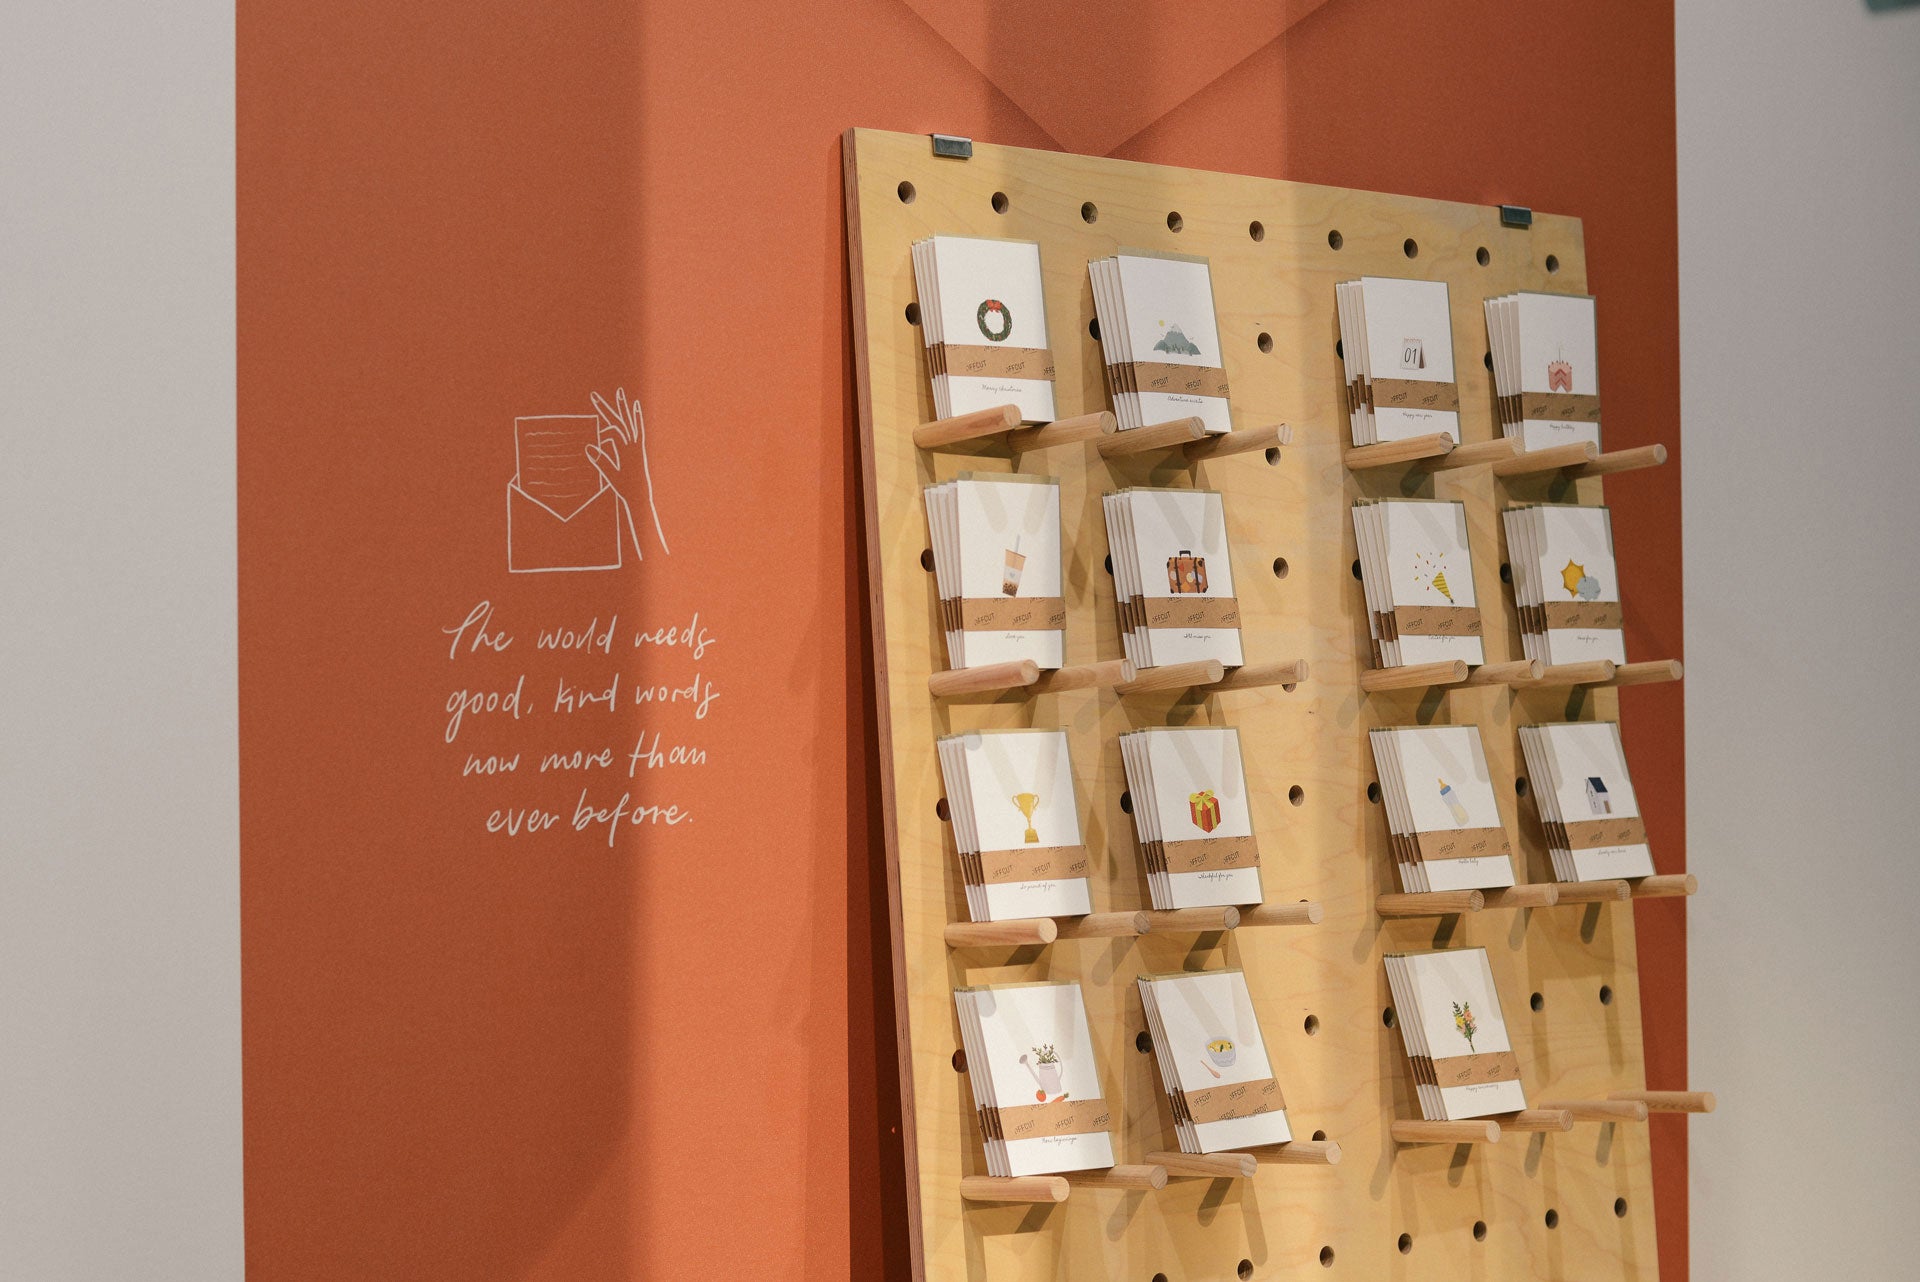 The world needs
good, kind words
now more than
ever before.
OFFCUT
Merry christmas
OFFCUT
Adventure awaits
01
OFFCUT
Happy new year
OFFCUT
Happy birthday
OFFCUT
Love you
OFFCUT
I'll miss you
OFFCUT
for you
OFFCUT
for you
OFFCUT
So proud of you
OFFCUT
Thankful for you
OFFCUT
Hello baby
OFFCUT
Lovely new home
OFFCUT
New beginnings
OFFCUT
OFFCUT
Happy anniversary